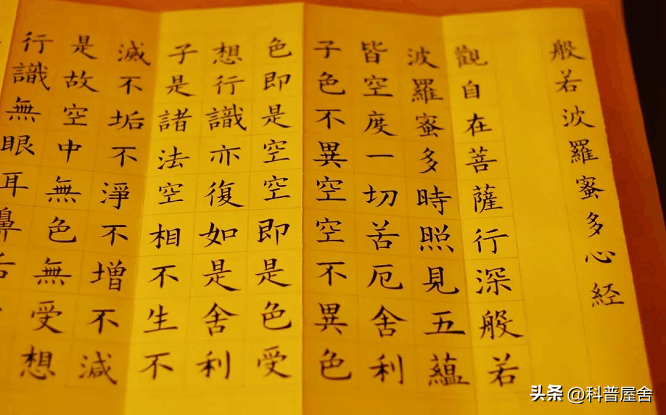 般若波羅蜜多心経
觀自在菩薩行深般若
波羅蜜多時照見五蘊
皆空度一切苦厄舍利
子色不異空空不異色
色即是空空即是色受
想行識亦復如是舍利
子是諸法空相不生不
滅不垢不淨不增不減
是故空中無色無受想
行識無眼耳鼻
头条 @科普屋舍